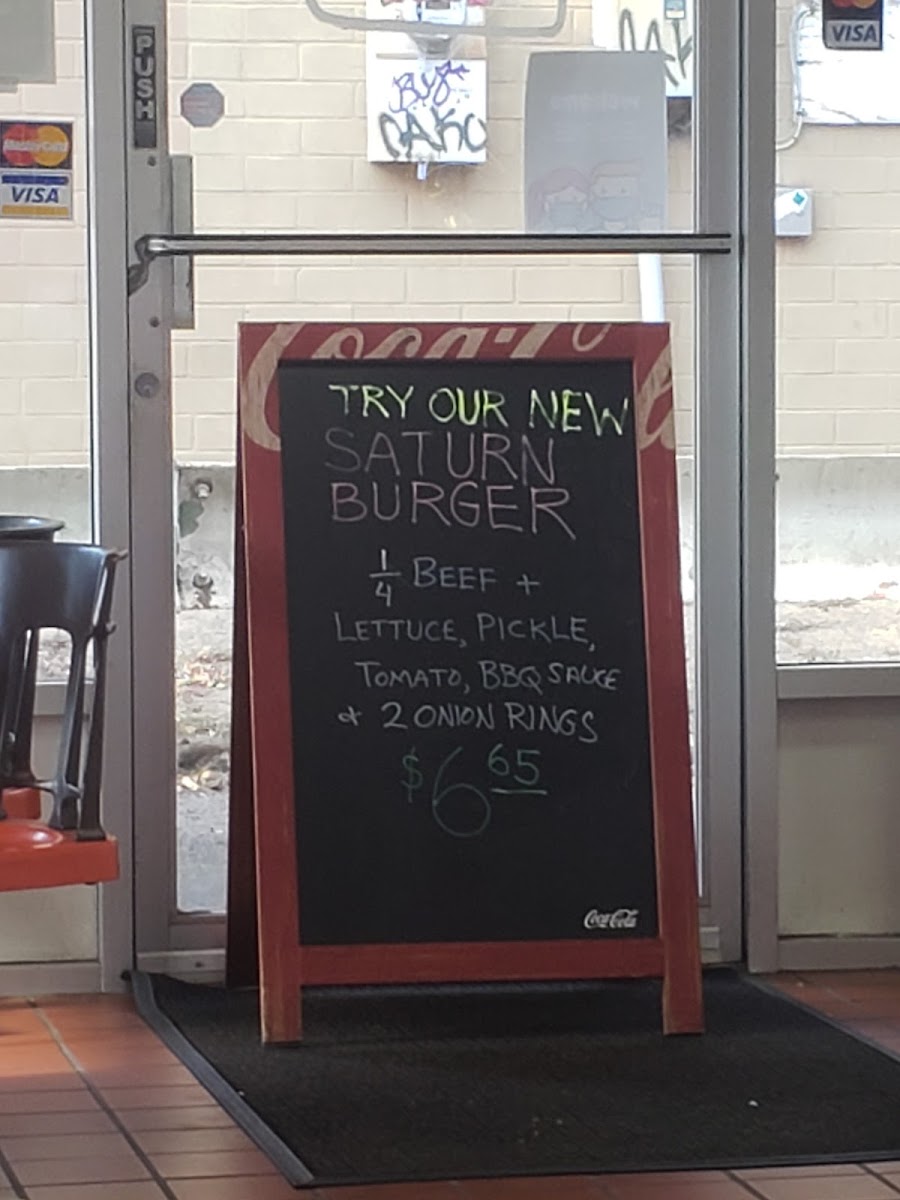 PUSH
MasterCard
VISA
VISA
Coca-Co
TRY OUR NEW
SATURN
BURGER
1/4 BEEF +
LETTUCE, PICKLE,
TOMATO, BBQ SAUCE
& 2 ONION RINGS
$6 65
Coca-Cola